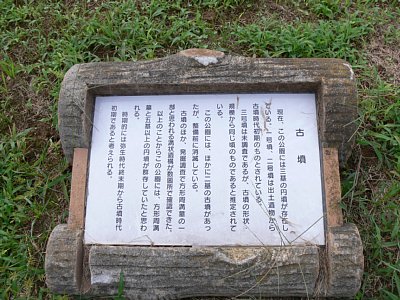 古墳
現在、この公園には三基の円墳が存在し
ている。一号墳、二号墳は出土遺物から
古墳時代初期のものとされている。
三号墳は未調査であるが、古墳の形状・
規模から同じ頃のものであると推定されて
いる。
この公園には、ほかに二基の古墳があっ
たが、整備前に消滅している。
古墳のほか、発掘調査で方形周溝墓の一
部と思われる溝状遺構が数箇所で確認できた。
以上のことからこの公園には、方形周溝
墓と五基以上の円墳が群存していたと思わ
れる。
時期的には弥生時代終末期から古墳時代
初期であると考えられる。